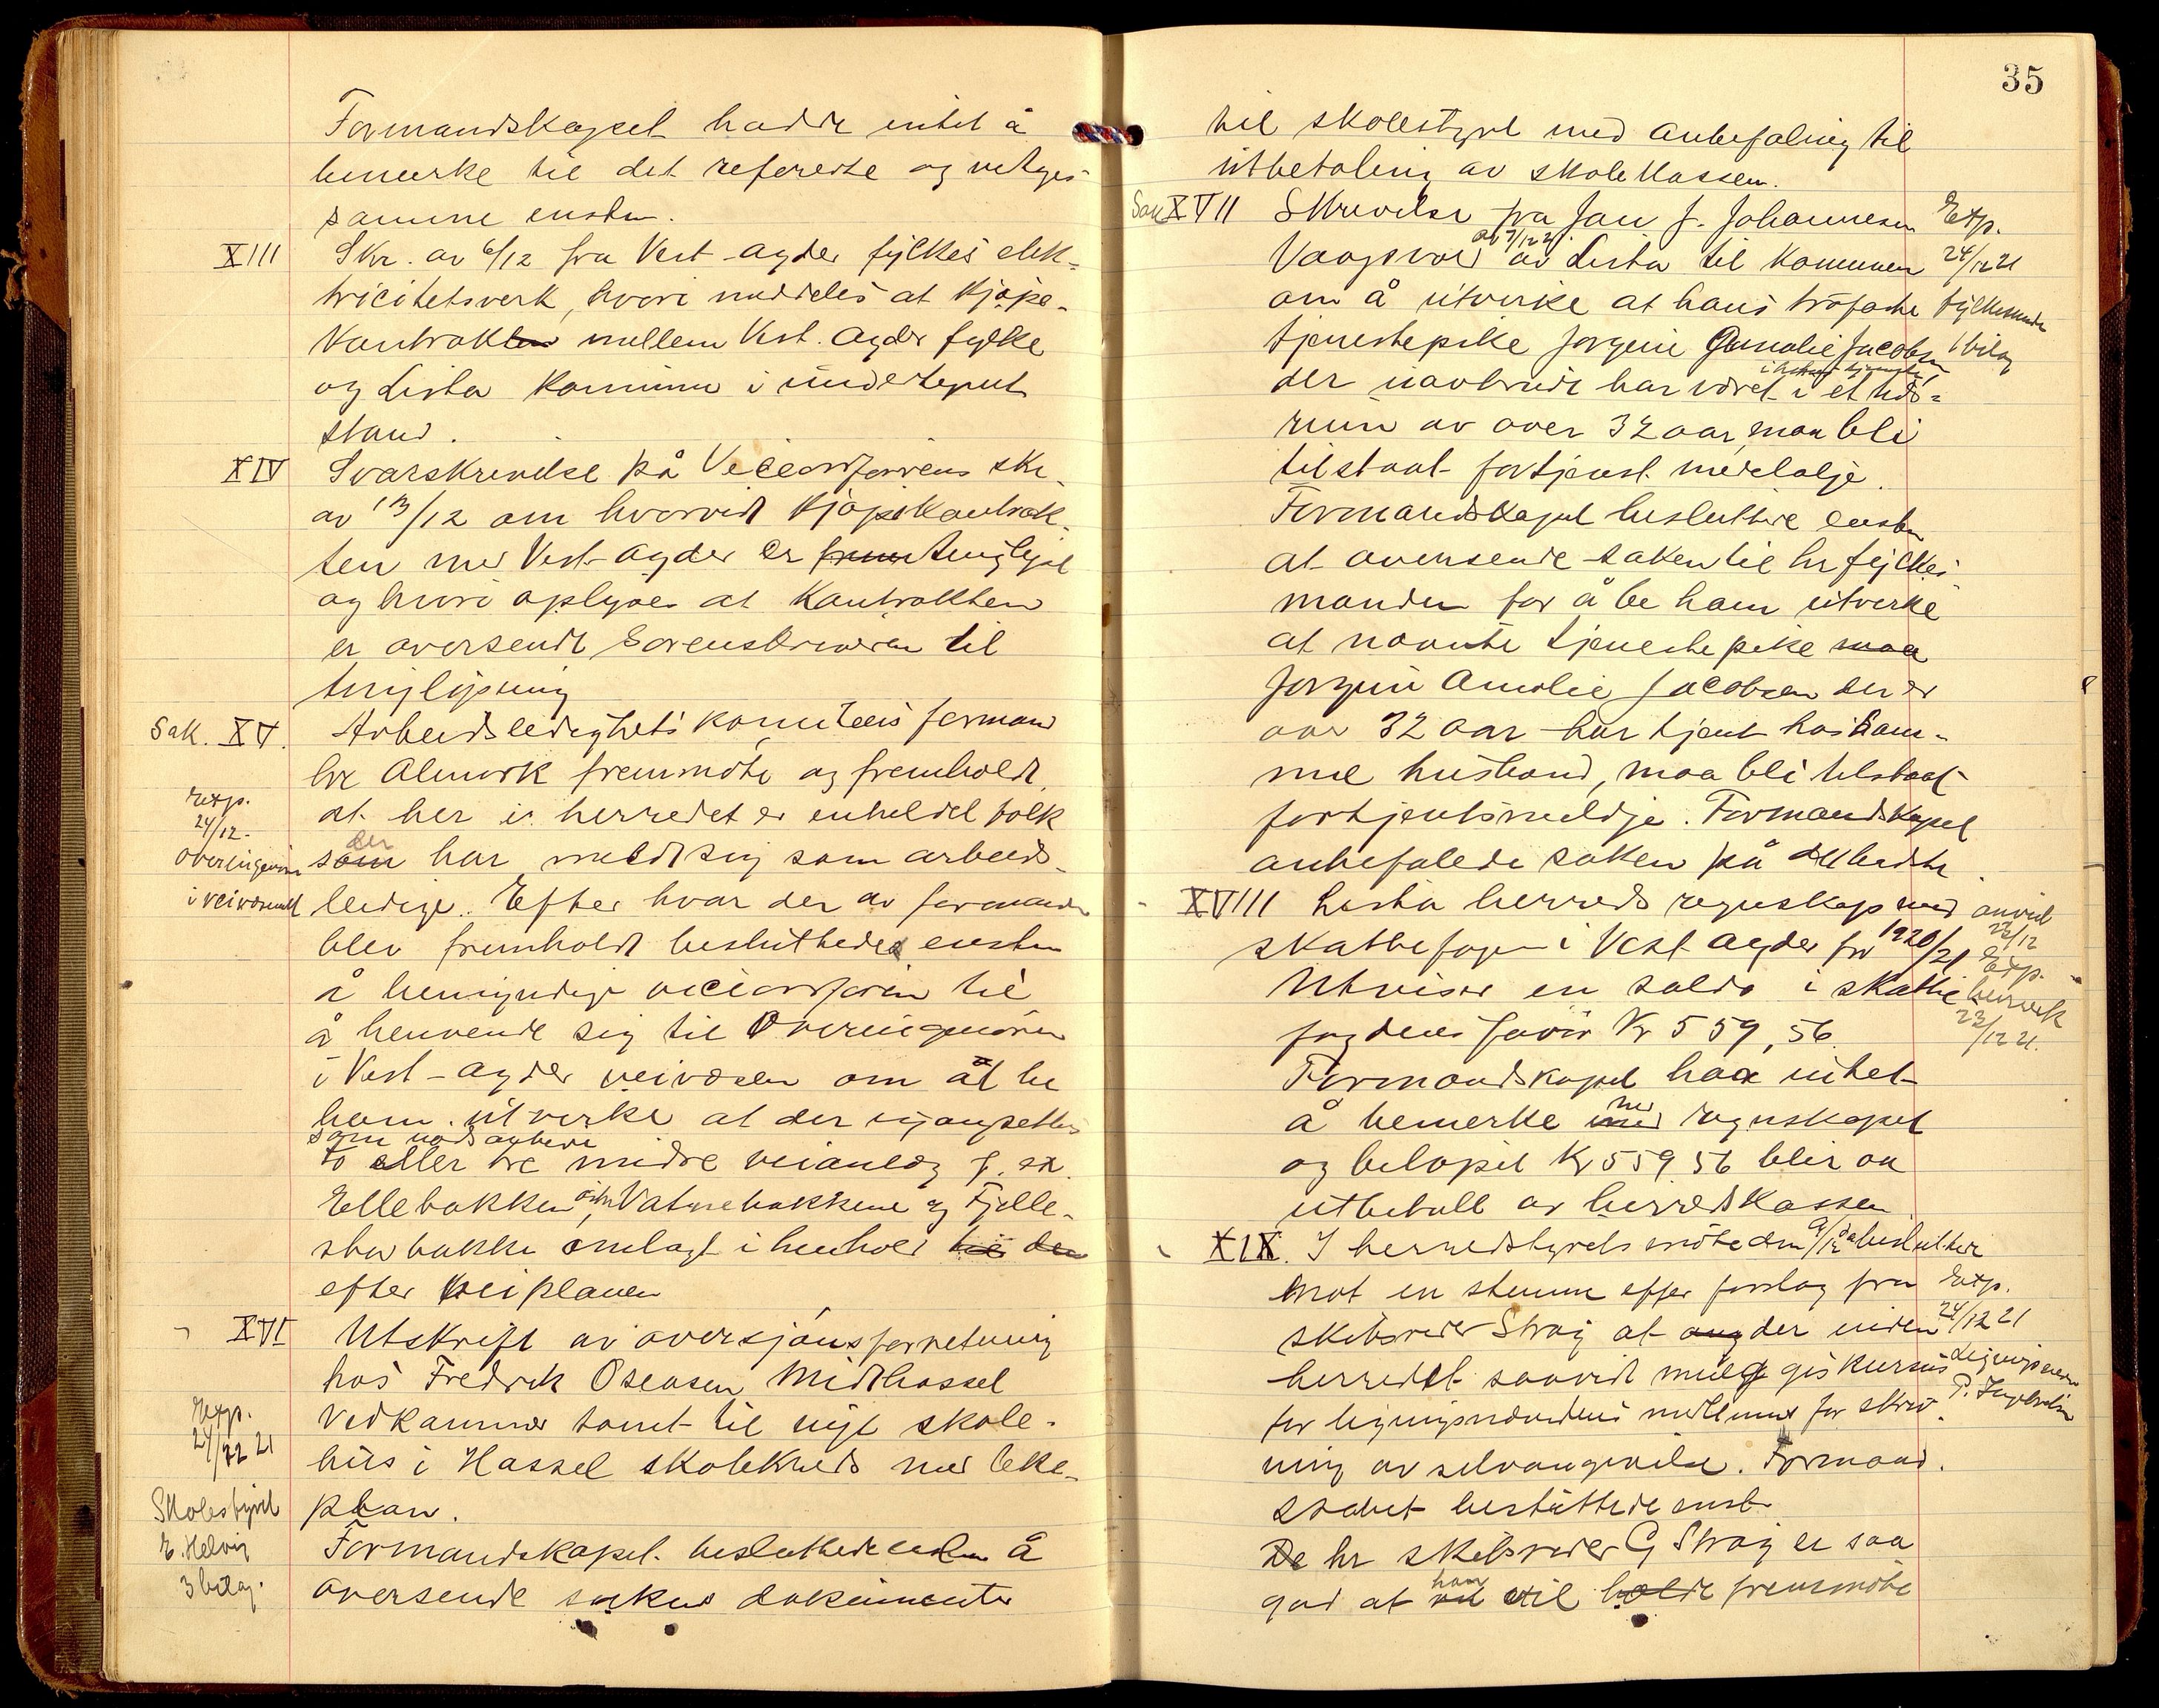 Formandskapet hadde intet å
bemerke til det refererte og vedtages
samme enstem.
XIII Skr. av 6/12 fra Vest-Agder fylkes elek-
tricitetsverk, hvori meddeles at kjøpe-
kontrakten mellem Vest-Agder fylke
og Lista kommune i undertegnet
stand.
XIV Svarskrivelse på Viceordførerens skr.
av 13/12 om hvorvidt kjøpekontrak-
ten med Vest-Agder er tinglyst
og hvori oplyses at kontrakten
er oversendt Sorenskriveren til
tinglysning
Sak. XV. Arbeidsledighets komiteens formand
hr Almork fremmøtte og fremholdt,
Exp.
24/12.
overingeniør
i veivæsenet
at her i herredet er enheldel folk
som der har meldt sig som arbeids-
ledige. Efter hvad der av formanden
blev fremholdt besluttedes enstem
å bemyndige viceordføreren til
å henvende sig til Overingeniøren
i Vest-Agder veivæsen om at be
ham utvirke at der igangsettes
som nødsarbeide
to eller tre mindre veianlæg f. ex.
Ellebakken, Vatnebakkene og Fjelle-
stadbakke omlagt i henhold til den
efter veiplanen
XVI Utskrift av oversjønsforretning
hos Fredrik Oseasen Midthassel
vedkommer tomt til nyt skole-
hus i Hassel skolekreds med leke-
plan.
Exp.
24/12 21
Skolestyret
E. Helvig
3 bilag.
Formandskapet besluttede enstem å
oversende sakens dokumenter
35
til skolestyret med anbefaling til
utbetaling av skolekassen.
Sak XVII Skrivelse fra Jan J. Johannesen
av 7/12 21.
Vaagsvold av Lista til kommunen
om å utvirke at hans trofaste
tjenestepike Jorgine Amalie Jacobsen
der uavbrudt har været i et tids-
rum av over 32 aar, maa bli
tilstaat fortjenst medalje.
Exp.
24/12 21
fylkesmanden
1 bilag
Formandskapet besluttede enstem
at oversende saken til hr fylkes-
manden for å be ham utvirke
at nævnte tjenestepike maa
Jorgine Amalie Jacobsen der er
over 32 aar har tjent hos sam-
me husbond, maa bli tilstaat
fortjenstmedalje. Formandskapet
anbefalede saken på det bedste.
XVIII Lista herreds regnskap med
skattefogden i Vest Agder for 1920/21
Utviser en saldo i skatte-
fogdens favør Kr 559,56
anvist
22/12
Exp.
herredsk
23/12 21.
Formandskapet har intet
å bemerke med regnskapet
og beløpet Kr 559 56 blir at
utbetale av herredskassen.
XIX. I herredstyrets møte den 9/12 da besluttede
mot en stemme efter forslag fra
skibsreder Stray at der inden
herredet saavidt mulig gis kursus
for ligningsnævndens medlemmer for skriv-
ning av selvangivelse. Formand-
skabet besluttede enst.
Exp.
24/12 21
Ligningsnevn
P. Ingebretsen
De hr skibsreder G Stray er saa
god at han vil holde fremmøte